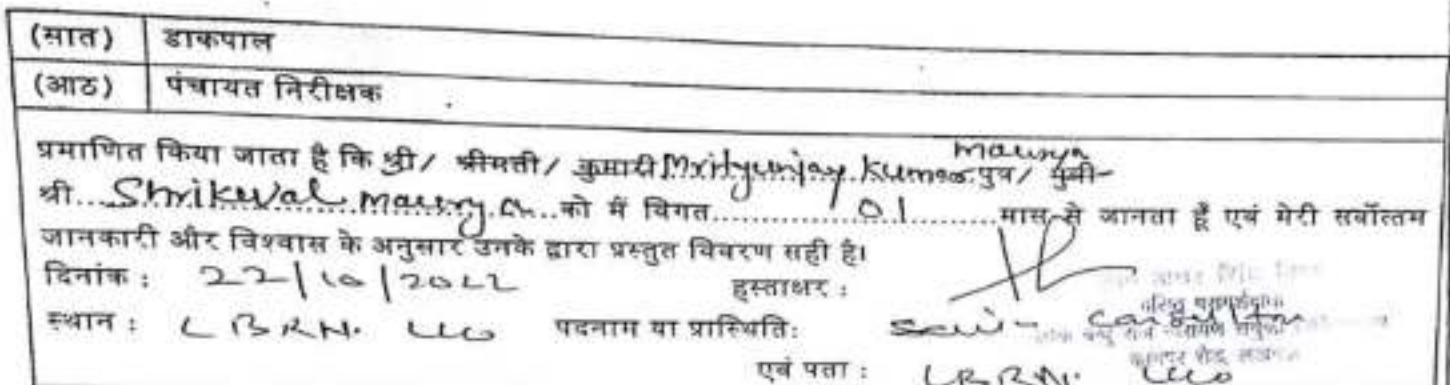 (सात) डाकपाल
(आठ) पंचायत निरीक्षक
प्रमाणित किया जाता है कि श्री/ श्रीमती/ कुमारी Mrityunjay Kumar maurya पुत्र/ पुत्री-
श्री....Shrikewal maurya...को मैं विगत...............01.........मास से जानता हूँ एवं मेरी सर्वोत्तम
जानकारी और विश्वास के अनुसार उनके द्वारा प्रस्तुत विवरण सही है।
दिनांक : 22/10/2022 हस्ताक्षर :
वरिष्ठ परामर्शदाता
स्थान : LBRN. LKO पदनाम या प्रास्थिति:
एवं पता : LBRN. LKO